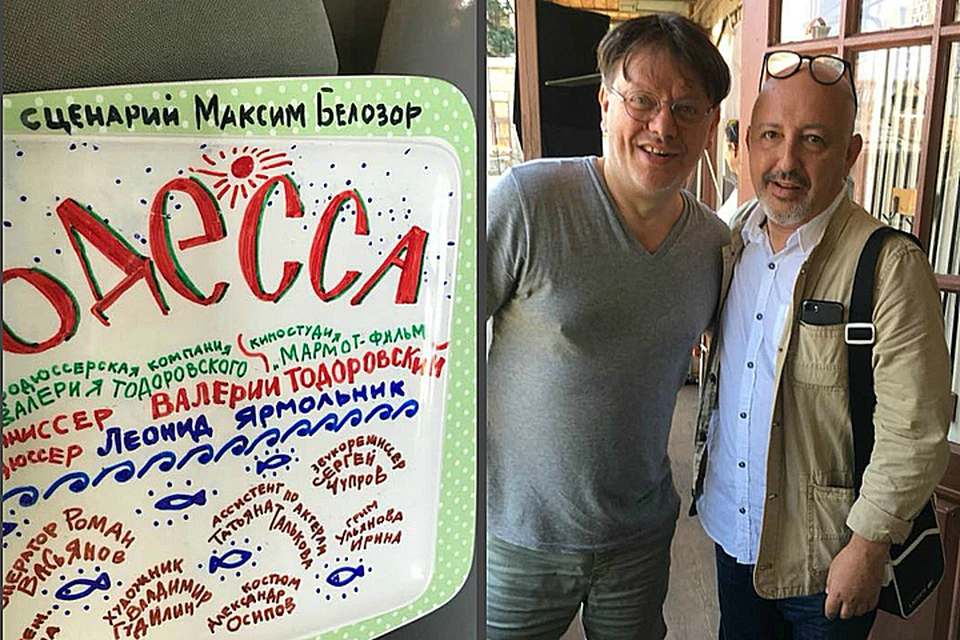 СЦЕНАРИЙ МАКСИМ БЕЛОЗОР
ОДЕССА
РОДЮССЕРСКАЯ КОМПАНИЯ
ВАЛЕРИЯ ТОДОРОВСКОГО
КИНОСТУДИЯ
„МАРМОТ-ФИЛЬМ
ИССЕР ВАЛЕРИЙ ТОДОРОВСКИЙ
ЮССЕР ЛЕОНИД ЯРМОЛЬНИК
ЗВУКОРЕЖИССЕР
СЕРГЕЙ
ЧУПРОВ
АССИСТЕНТ ПО АКТЕРАМ
ТАТЬЯНА ТАЛЬКОВА
ГРИМ
УЛЬЯНОВА
ИРИНА
ОПЕРАТОР РОМАН
ВАСЬЯНОВ
ХУДОЖНИК
ВЛАДИМИР
ГУДИЛИН
КОСТЮМ
АЛЕКСАНДР
ОСИПОВ